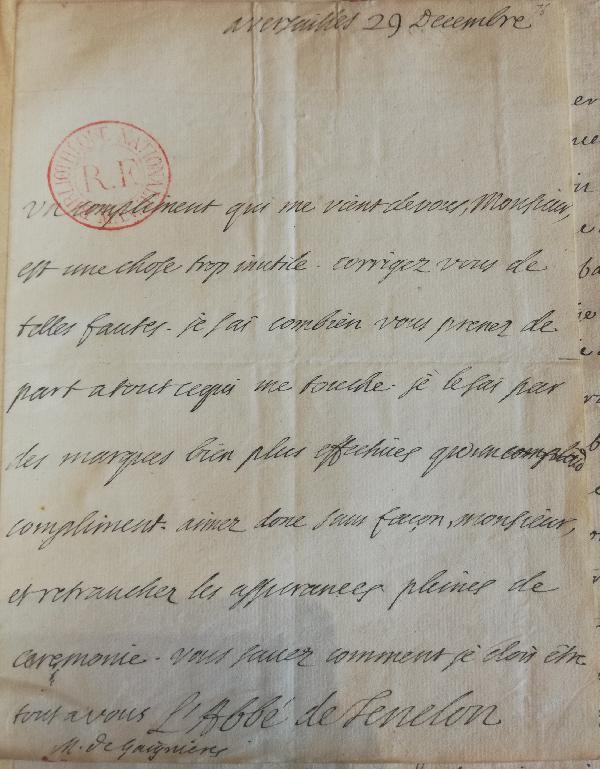 a versailles 29 Decembre
76
BIBLIOTHEQUE NATIONALE
R.F.
Un compliment qui me vient de vous, Monsieur,
est une chose trop inutile. corrigez vous de
telles fautes. je sai combien vous prenez de
part a tout ce qui me touche. je le sai par
des marques bien plus effectives qu'un
compliment. aimez donc sans façon, monsieur,
et retranchez les assurances pleines de
ceremonie. vous savez comment je dois être
tout a vous L'Abbé de Fenelon
M. de Gaignieres